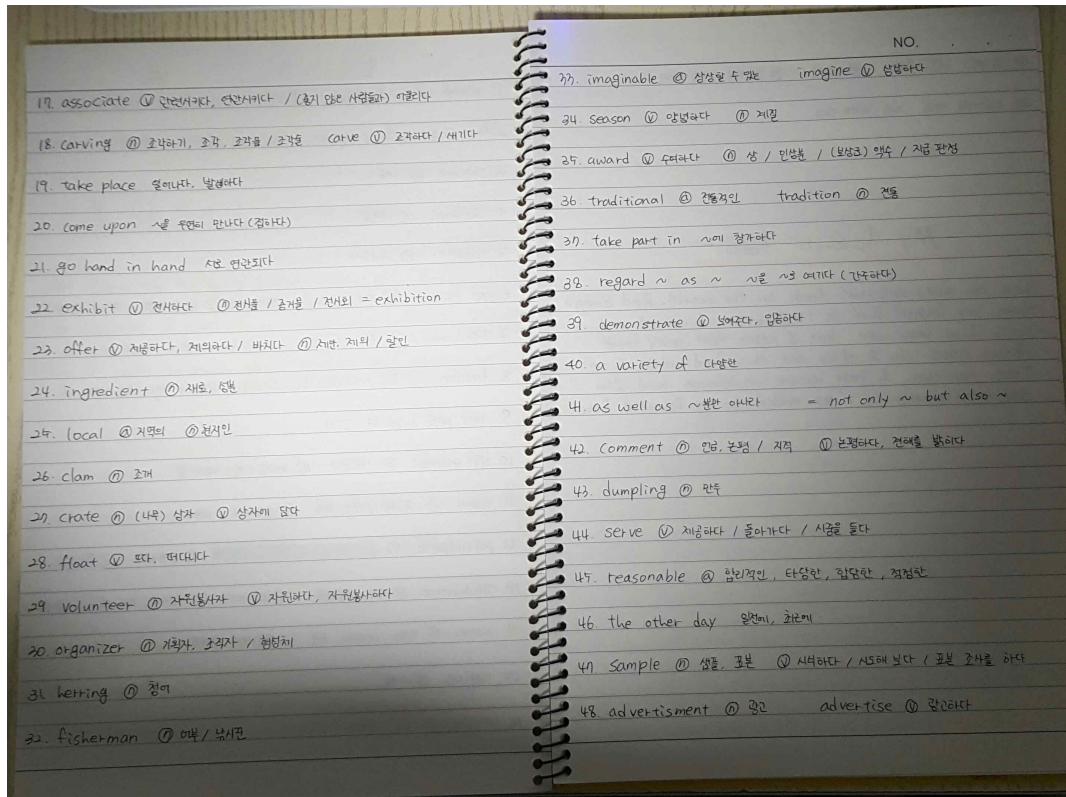 17. associate ⓥ 관련시키다, 연관시키다 / (좋지 않은 사람들과) 어울리다
18. carving ⓝ 조각하기, 조각, 조각물 / 조각술 carve ⓥ 조각하다 / 새기다
19. take place 일어나다, 발생하다
20. come upon ~을 우연히 만나다 (접하다)
21. go hand in hand 서로 연관되다
22. exhibit ⓥ 전시하다 ⓝ 전시품 / 증거물 / 전시회 = exhibition
23. offer ⓥ 제공하다, 제의하다 / 바치다 ⓝ 제안, 제의 / 할인
24. ingredient ⓝ 재료, 성분
25. local ⓐ 지역의 ⓝ 현지인
26. clam ⓝ 조개
27. crate ⓝ (나무) 상자 ⓥ 상자에 담다
28. float ⓥ 뜨다, 떠다니다
29. volunteer ⓝ 자원봉사자 ⓥ 자원하다, 자원봉사하다
30. organizer ⓝ 기획자, 조직자 /
31. herring ⓝ 청어
32. fisherman ⓝ 어부 / 낚시꾼
NO. . .
33. imaginable ⓐ 상상할 수 있는 imagine ⓥ 상상하다
34. season ⓥ 양념하다 ⓝ 계절
35. award ⓥ 수여하다 ⓝ 상 / 인상분 / (보상금) 액수 / 지급 판정
36. traditional ⓐ 전통적인 tradition ⓝ 전통
37. take part in ~에 참가하다
38. regard ~ as ~ ~을 ~로 여기다 (간주하다)
39. demonstrate ⓥ 보여주다, 입증하다
40. a variety of 다양한
41. as well as ~뿐만 아니라 = not only ~ but also ~
42. comment ⓝ 언급, 논평 / 지적 ⓥ 논평하다, 견해를 밝히다
43. dumpling ⓝ 만두
44. serve ⓥ 제공하다 / 돌아가다 / 시중을 들다
45. reasonable ⓐ 합리적인, 타당한, 합당한, 적정한
46. the other day 일전에, 최근에
47. sample ⓝ 샘플, 표본 ⓥ 시식하다 / 시도해 보다 / 표본 조사를 하다
48. advertisment ⓝ 광고 advertise ⓥ 광고하다